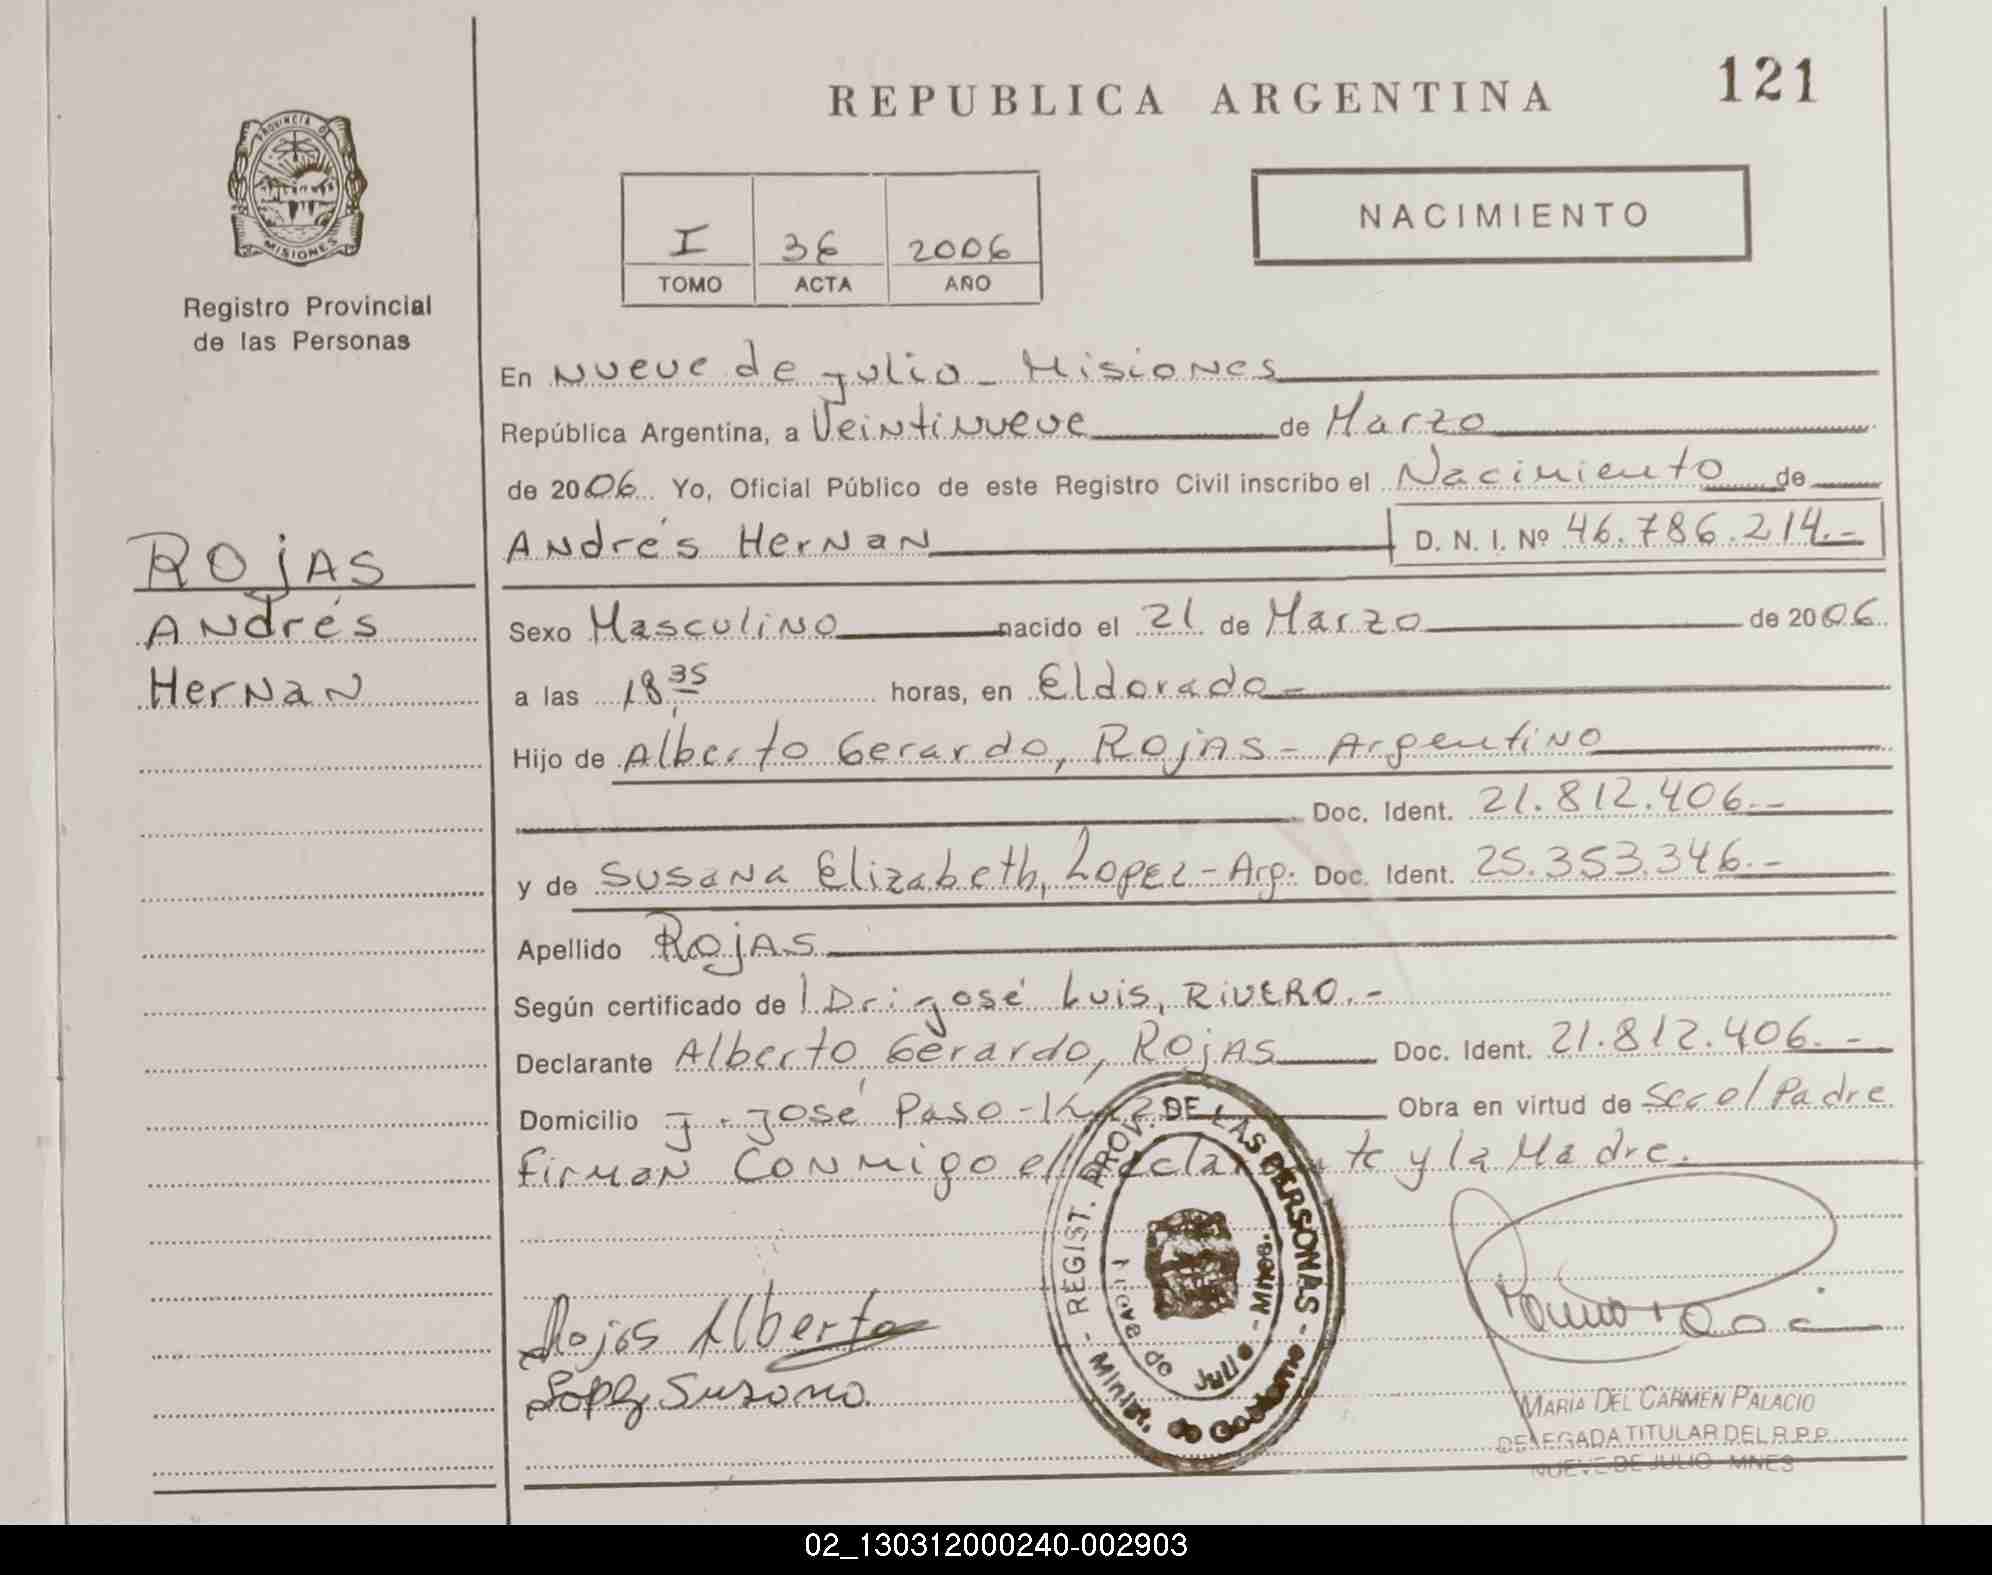 REPUBLICA ARGENTINA
121
PROVINCIA DE
MISIONES
Registro Provincial
de las Personas
I 36 2006
TOMO ACTA AÑO
NACIMIENTO
En Nueve de julio - Misiones
República Argentina, a Veintinueve de Marzo
de 2006. Yo, Oficial Público de este Registro Civil inscribo el Nacimiento de
Andrés Hernan D. N. I. Nº 46.786.214.-
Rojas
Andrés
Hernan
Sexo Masculino nacido el 21 de Marzo de 2006.
a las 18,35 horas, en Eldorado -
Hijo de Alberto Gerardo, Rojas - Argentino
Doc. Ident. 21.812.406.-
y de Susana Elizabeth, Lopez - Arg. Doc. Ident. 25.353.346.-
Apellido Rojas
Según certificado de José Luis, Rivero.-
Declarante Alberto Gerardo, Rojas Doc. Ident. 21.812.406.-
Domicilio J. José Paso - Obra en virtud de Ser el Padre
Firman Conmigo el Declarante y la Madre.
- REGIST. PROV. DE LAS PERSONAS -
Minist. de Gobierno
Nueve de Julio - Mnes.
Rojas Alberto
Lopez Susana
MARIA DEL CARMEN PALACIO
DELEGADA TITULAR DEL R.P.P.
NUEVE DE JULIO - MNES
02_130312000240-002903